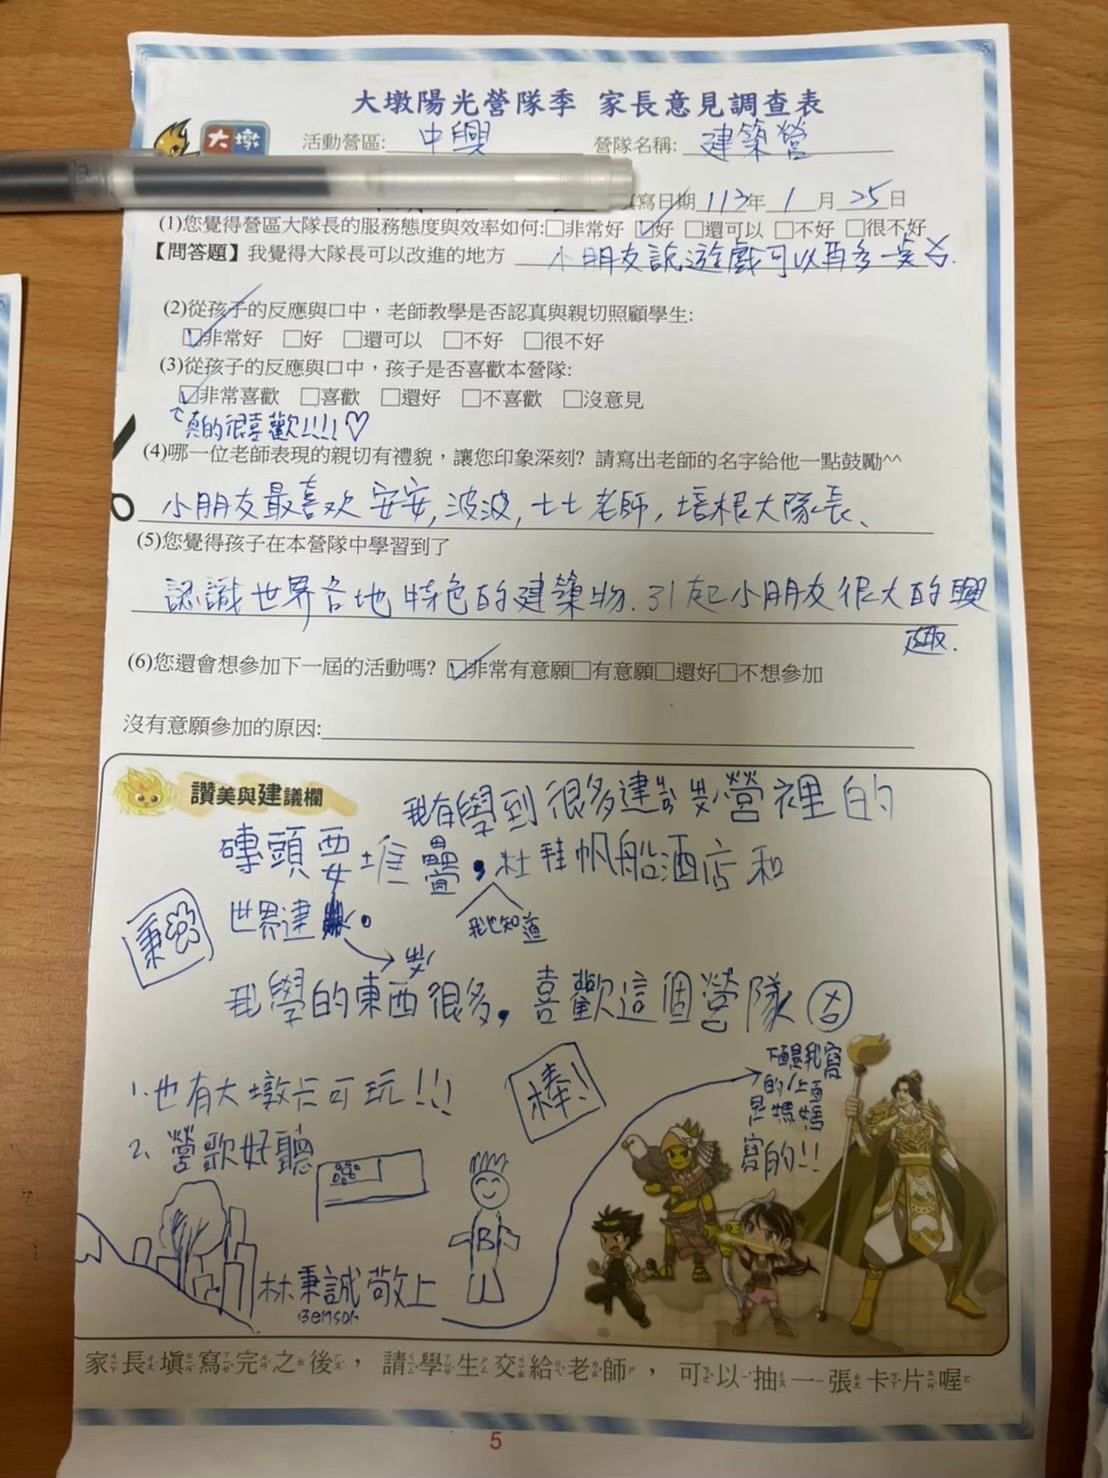 大墩陽光營隊季 家長意見調查表
大墩
活動營區: 中興 營隊名稱: 建築營
填寫日期 113年 1 月 25日
(1)您覺得營區大隊長的服務態度與效率如何:□非常好 ☑好 □還可以 □不好 □很不好
【問答題】我覺得大隊長可以改進的地方 小朋友說遊戲可以再多一點
(2)從孩子的反應與口中，老師教學是否認真與親切照顧學生:
☑非常好 □好 □還可以 □不好 □很不好
(3)從孩子的反應與口中，孩子是否喜歡本營隊:
☑非常喜歡 □喜歡 □還好 □不喜歡 □沒意見
真的很喜歡!!!! ♡
(4)哪一位老師表現的親切有禮貌，讓您印象深刻? 請寫出老師的名字給他一點鼓勵^^
小朋友最喜欢 安安, 波波, 七七老師, 培根大隊長、
(5)您覺得孩子在本營隊中學習到了
認識世界各地特色的建築物. 引起小朋友很大的興
趣.
(6)您還會想參加下一屆的活動嗎? ☑非常有意願□有意願□還好□不想參加
沒有意願參加的原因:
讚美與建議欄
我有學到很多建ㄓㄨˊ營裡的
磚頭要堆疊，杜拜帆船酒店和
我也知道
世界建ㄓㄨˊ。
秉
我學的東西很多，喜歡這個營隊
下面是我寫
的/上面
是媽媽
寫的!!
棒!
1.也有大墩卡可玩!!!
2、營歌好聽
B
林秉誠敬上
Benson
家長填寫完之後，請學生交給老師，可以抽一張卡片喔
5